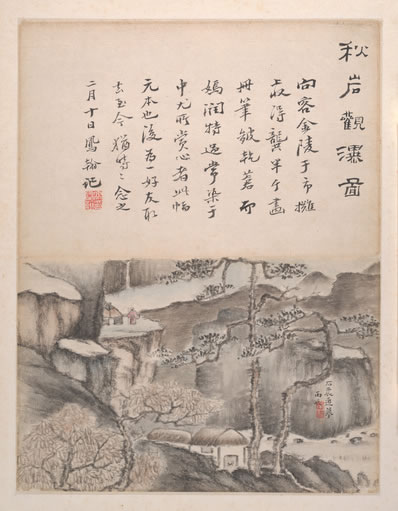 秋岩觀瀑圖
向客金陵于市攤
上收得龔半千畫
冊筆皴乾蒼而
嫣潤特過常染于
中尤所賞心者此幅
元本也後為一好友取
去至今猶時〻念之
二月十日鳳翰記